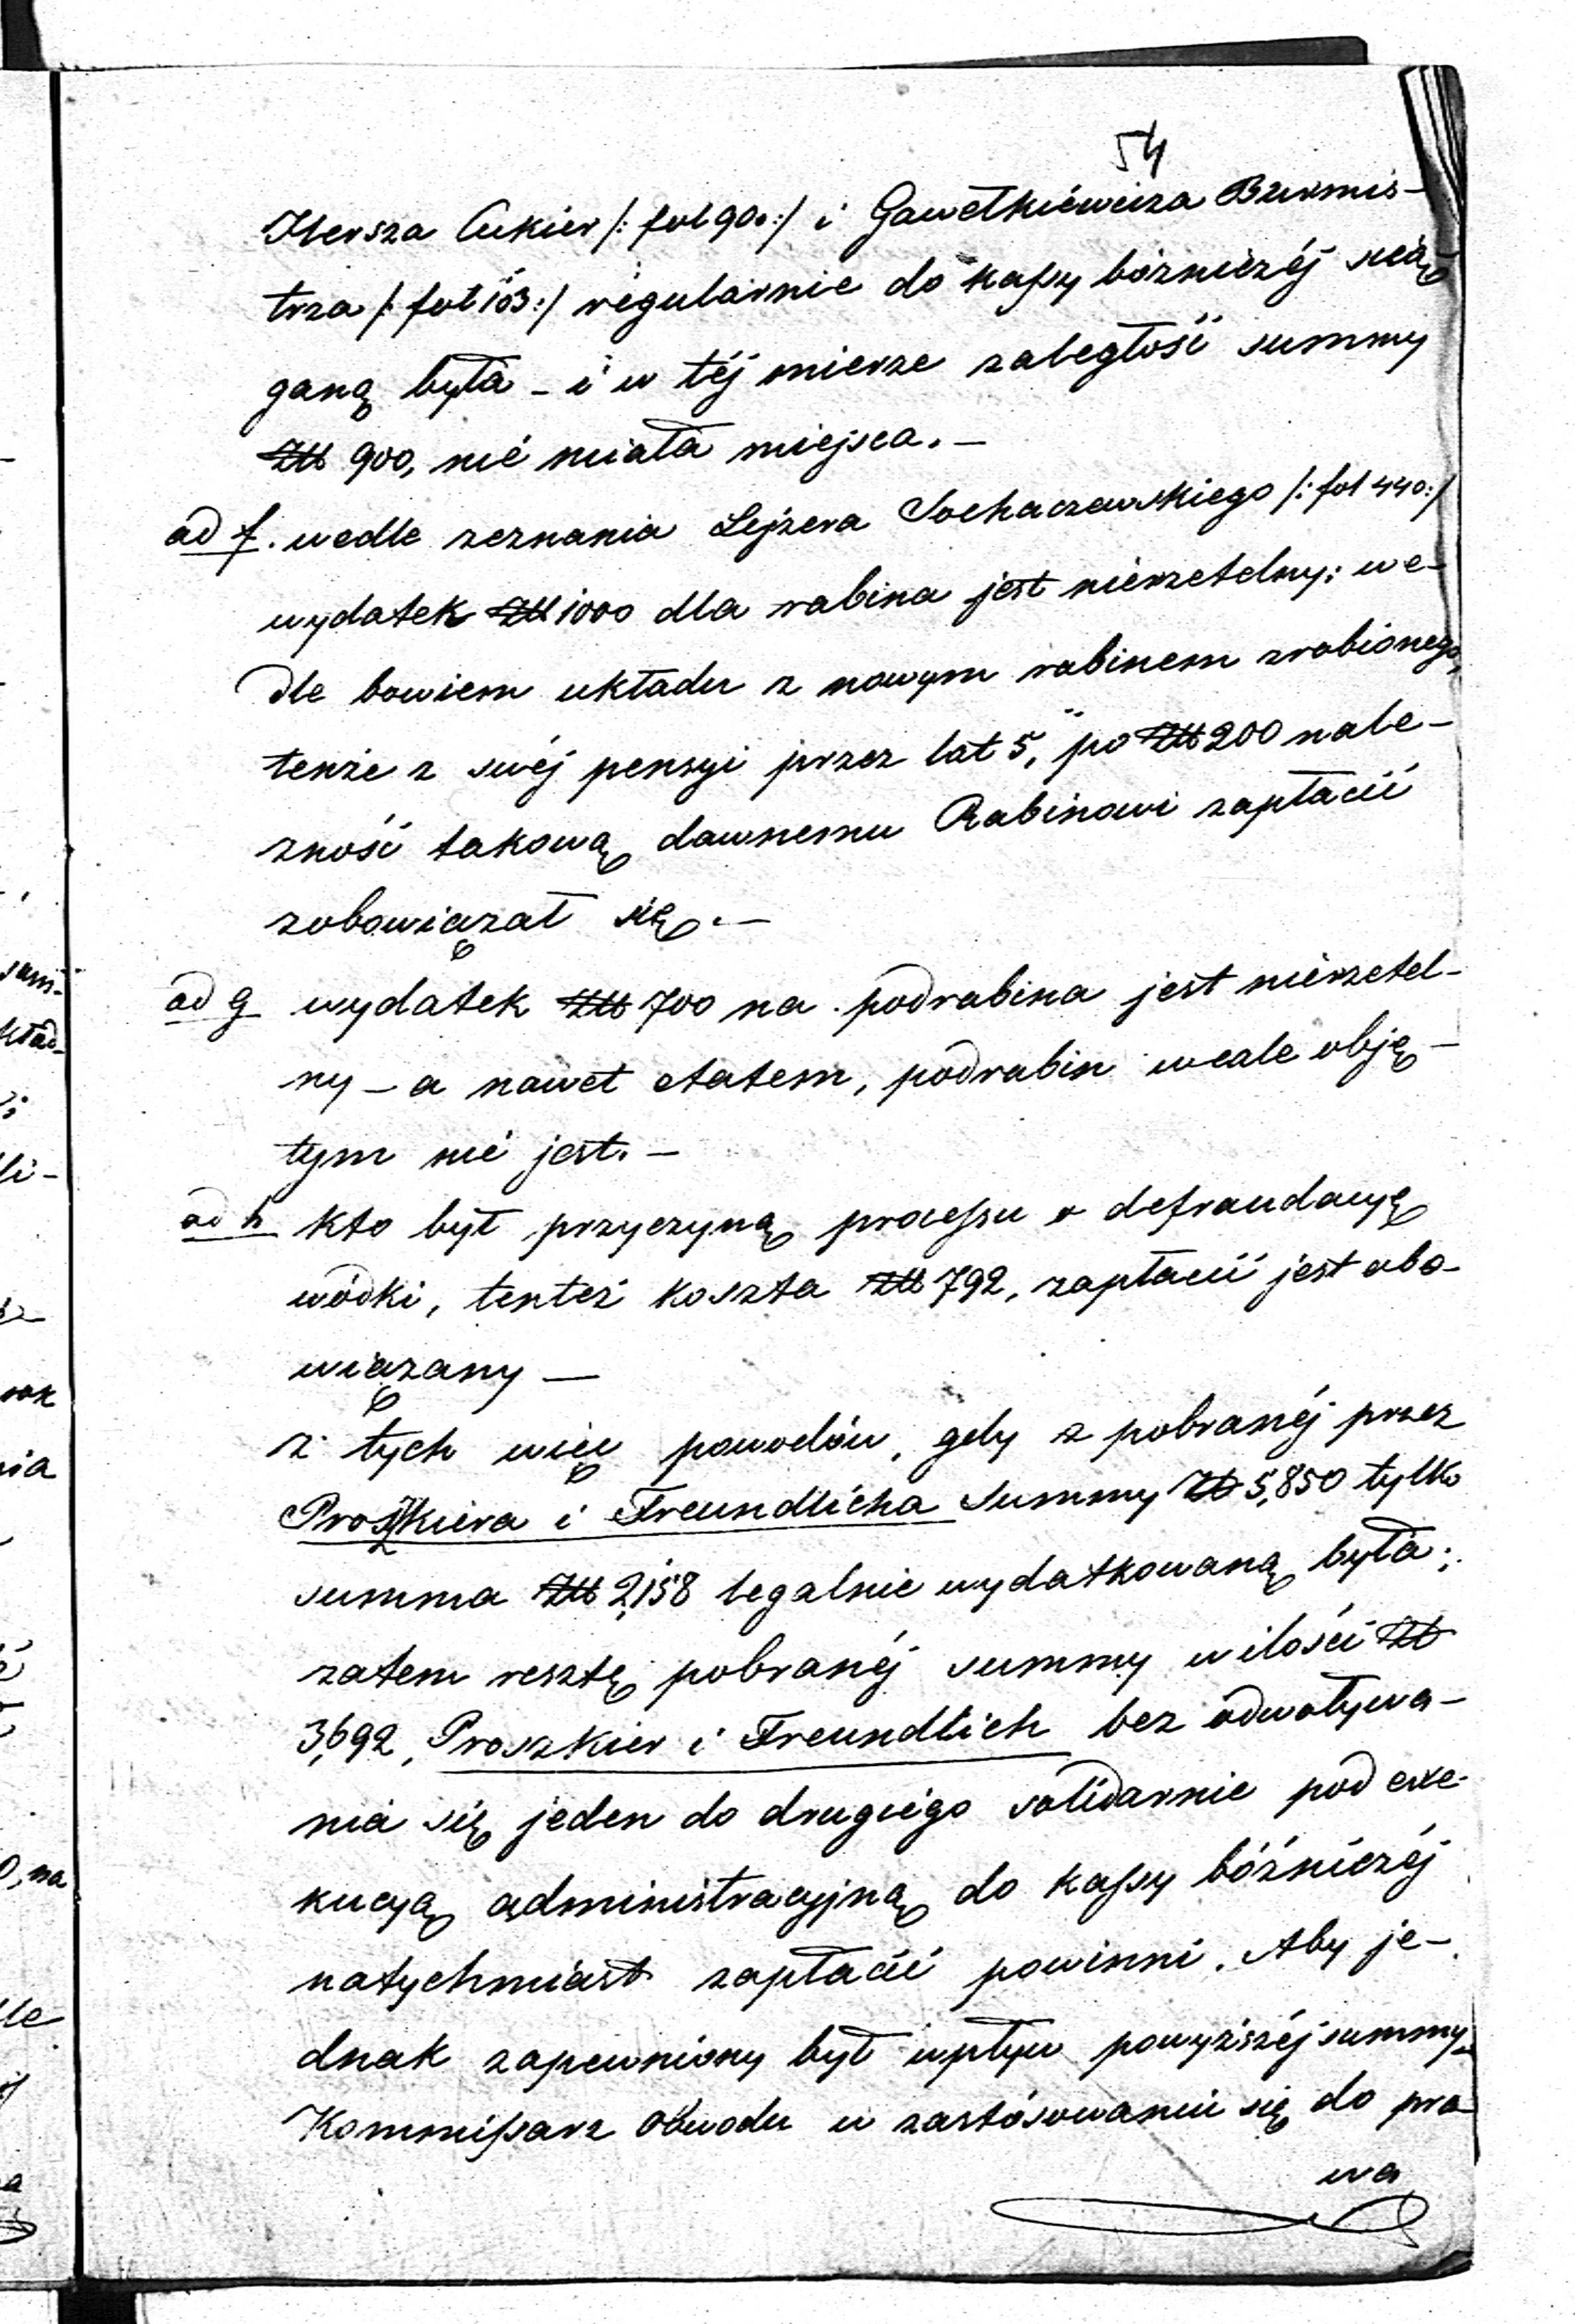 54
Hersza Cukier /: fol 90.:/ i Gawełkiéwicza Burmis-
trza /: fol 103:/ regularnie do kassy bóżniczéj scią-
ganą była - i w téj mierze zaległość summy
Złł 900, nié miała miejsca. -
ad f. wedle zeznania Lejzera Sochaczewskiego /: fol 440:/
wydatek Złł 1000 dla rabina jest nierzetelny; we-
dle bowiem układu z nowym rabinem zrobionego,
tenże z swéj pensyi przez lat 5, po Złł 200 nale-
żność takową dawnemu Rabinowi zapłacić
zobowiązał się. -
ad g wydatek Złł 700 na podrabina jest nierzetel-
ny - a nawet etatem, podrabin wcale obję-
tym nié jest. -
ad h kto był przyczyną processu o defraudacyę
wódki, tenteż koszta Złł 792, zapłacić jest obo-
wiązany -
z tych więc powodów, gdy z pobranéj przez
Proszkiera i Freundlicha summy Zł 5,850 tylko
summa Złł 2,158 legalnie wydatkowaną była;
zatem resztę pobranéj summy w ilości Zł
3,692, Proszkier i Freundlich bez odwoływa-
nia się jeden do drugiégo solidarnie pod exe-
kucyą administracyjną do kassy bóżniczéj
natychmiast zapłacić powinni. Aby je-
dnak zapewniony był wpływ powyższéj summy
Kommissarz Obwodu w zastósowaniu się do pra-
wa
sum-
kład-
li-
nia
0, na
le